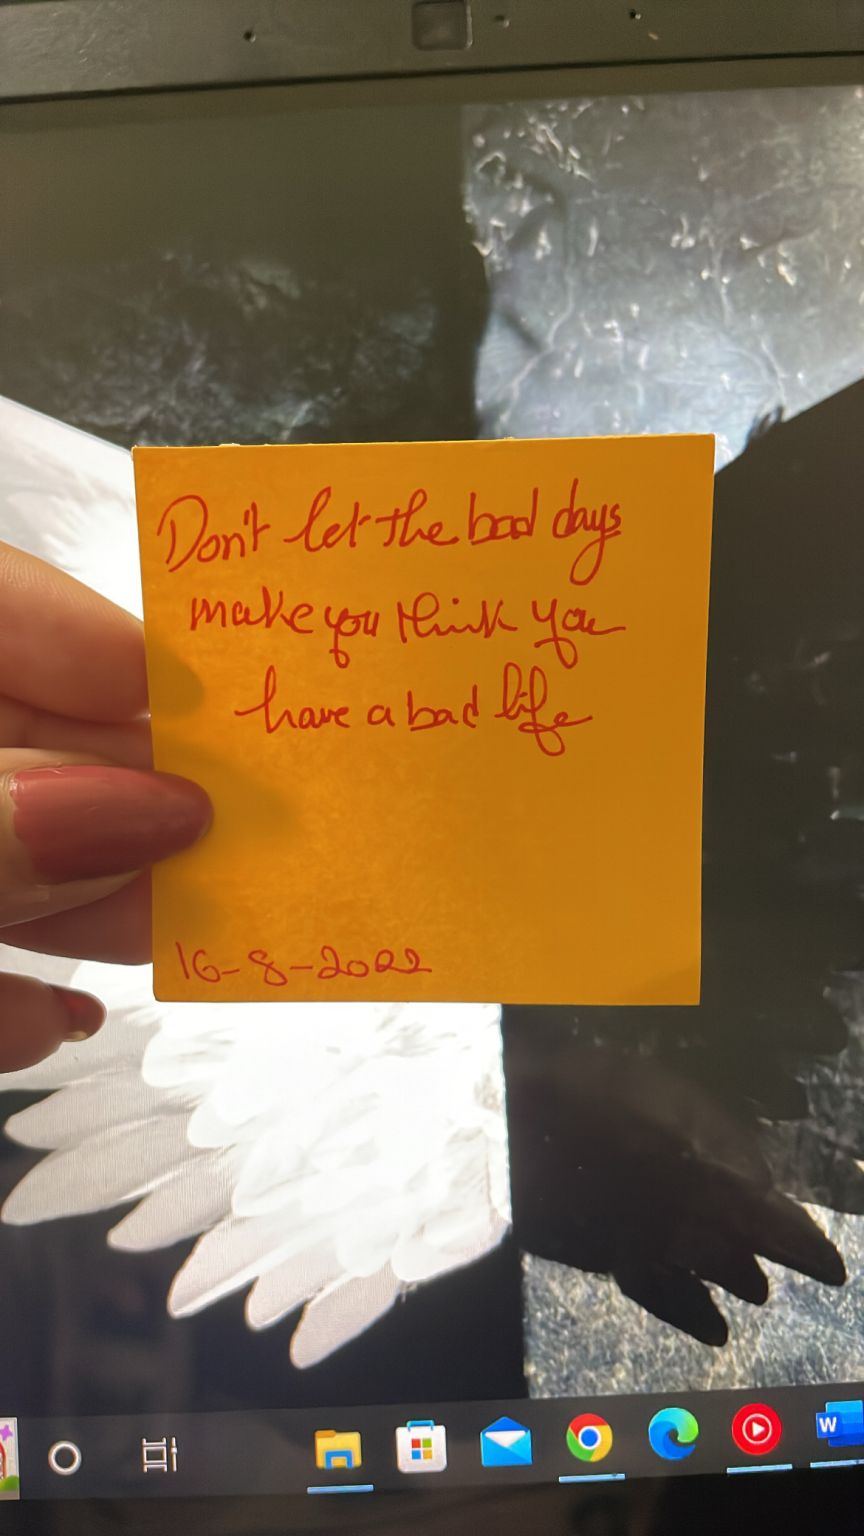 Don't let the bad days
make you think you
have a bad life
16-8-2022
W